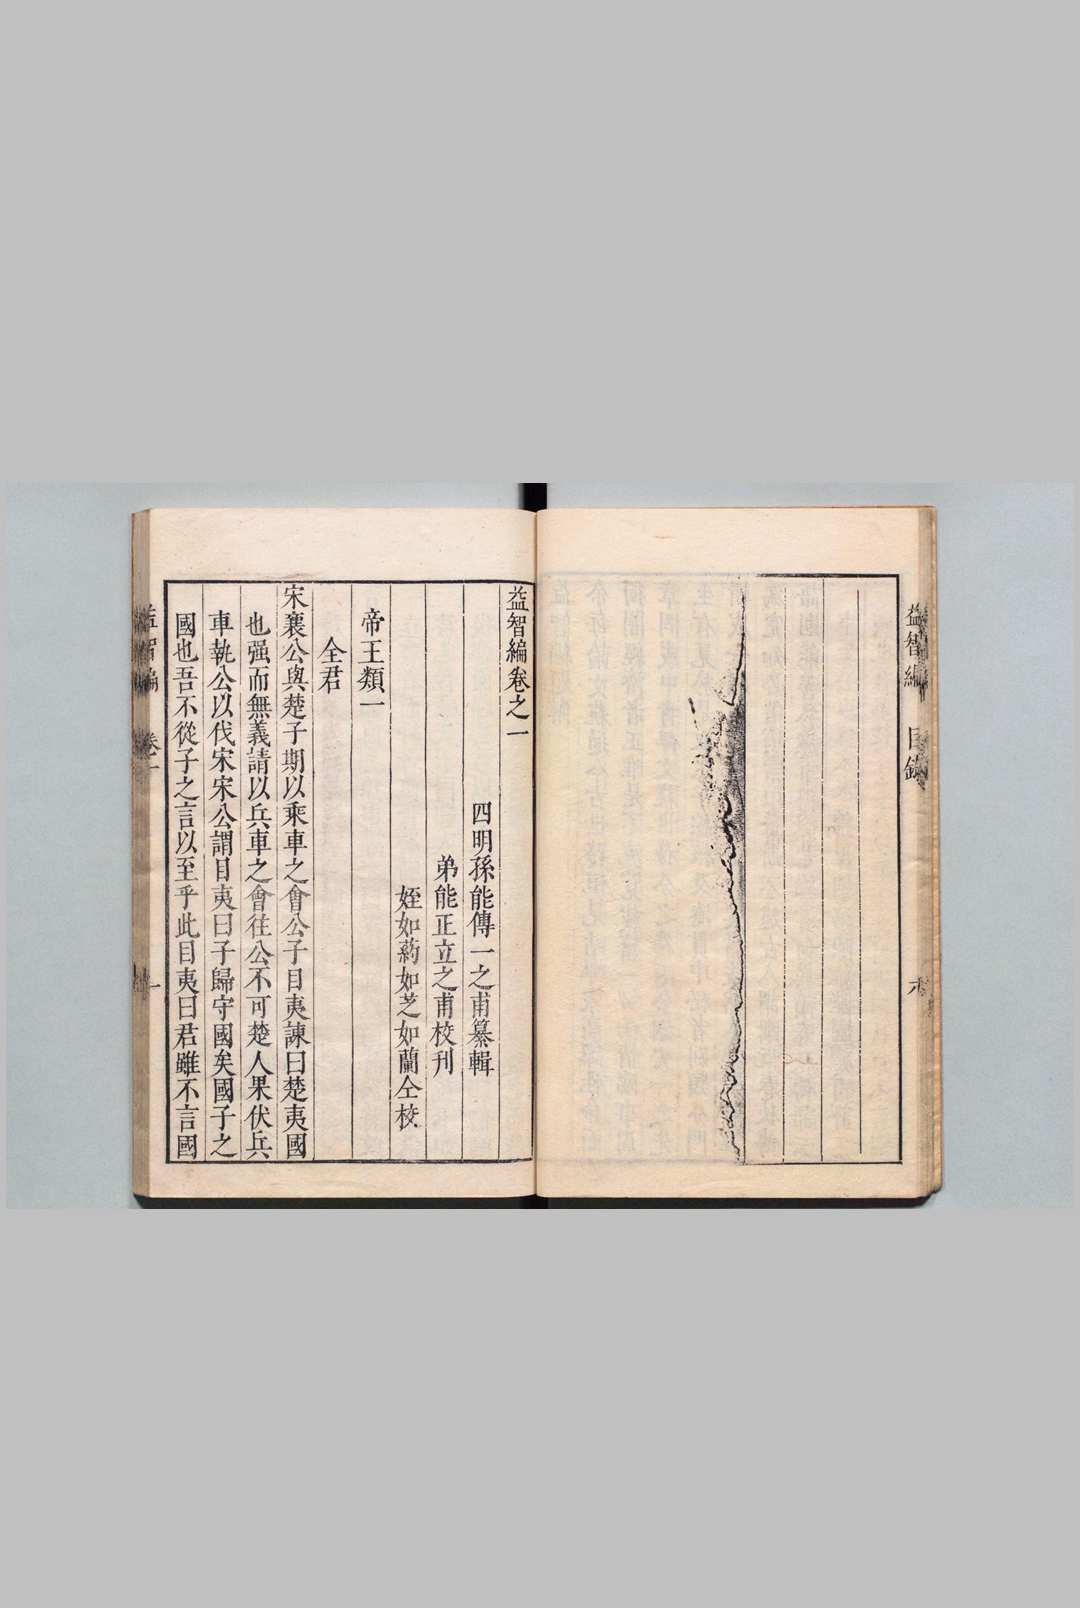 益智編 目錄 六
益智編卷之一
四明孫能傳一之甫纂輯
弟能正立之甫校刊
姪如葯如芝如蘭仝校
帝王類一
全君
宋襄公與楚子期以乘車之會公子目夷諫曰楚夷國
也强而無義請以兵車之會往公不可楚人果伏兵
車執公以伐宋宋公謂目夷曰子歸守國矣國子之
國也吾不從子之言以至乎此目夷曰君雖不言國
益智編 卷一 一